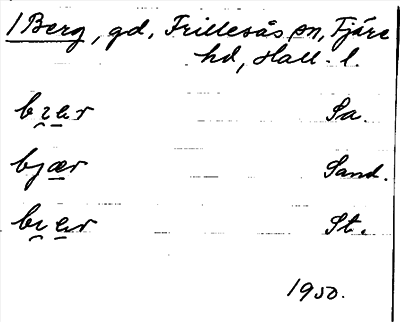 1 Berg, gd, Frillesås sn, Fjäre
hd, Hall. l.
Sa.
bjær Sand.
St.
1950.